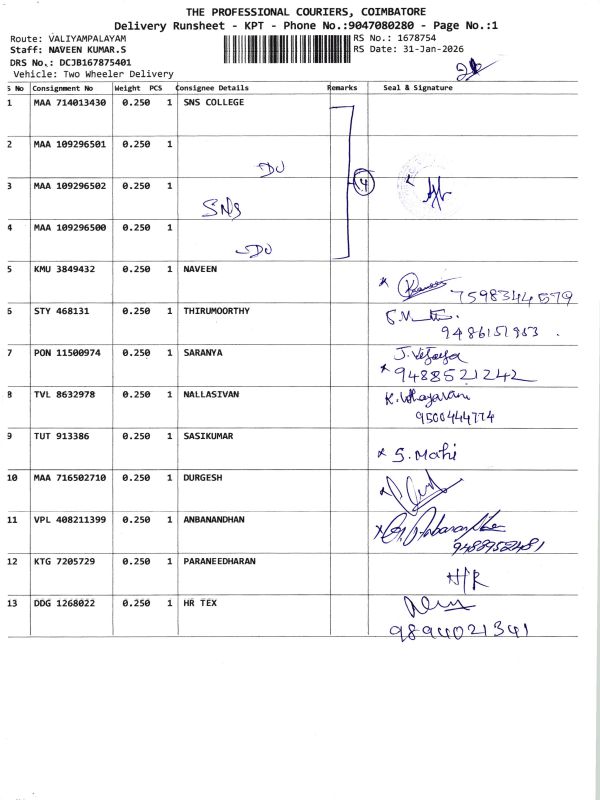 THE PROFESSIONAL COURIERS, COIMBATORE
Delivery Runsheet - KPT - Phone No.:9047080280 - Page No.:1
Route: VALIYAMPALAYAM RS No.: 1678754
Staff: NAVEEN KUMAR.S RS Date: 31-Jan-2026
DRS No.: DCJB167875401
Vehicle: Two Wheeler Delivery
S No Consignment No Weight PCS Consignee Details Remarks Seal & Signature
1 MAA 714013430 0.250 1 SNS COLLEGE
2 MAA 109296501 0.250 1
DO
3 MAA 109296502 0.250 1 4
SNS
4 MAA 109296500 0.250 1
DO
5 KMU 3849432 0.250 1 NAVEEN
7598344579
6 STY 468131 0.250 1 THIRUMOORTHY
9486151953
7 PON 11500974 0.250 1 SARANYA J. Vijaya
9488521242
8 TVL 8632978 0.250 1 NALLASIVAN
9500444774
9 TUT 913386 0.250 1 SASIKUMAR
x S. Mahi
10 MAA 716502710 0.250 1 DURGESH
11 VPL 408211399 0.250 1 ANBANANDHAN
9488952481
12 KTG 7205729 0.250 1 PARANEEDHARAN
H/R
13 DDG 1268022 0.250 1 HR TEX
9894021341